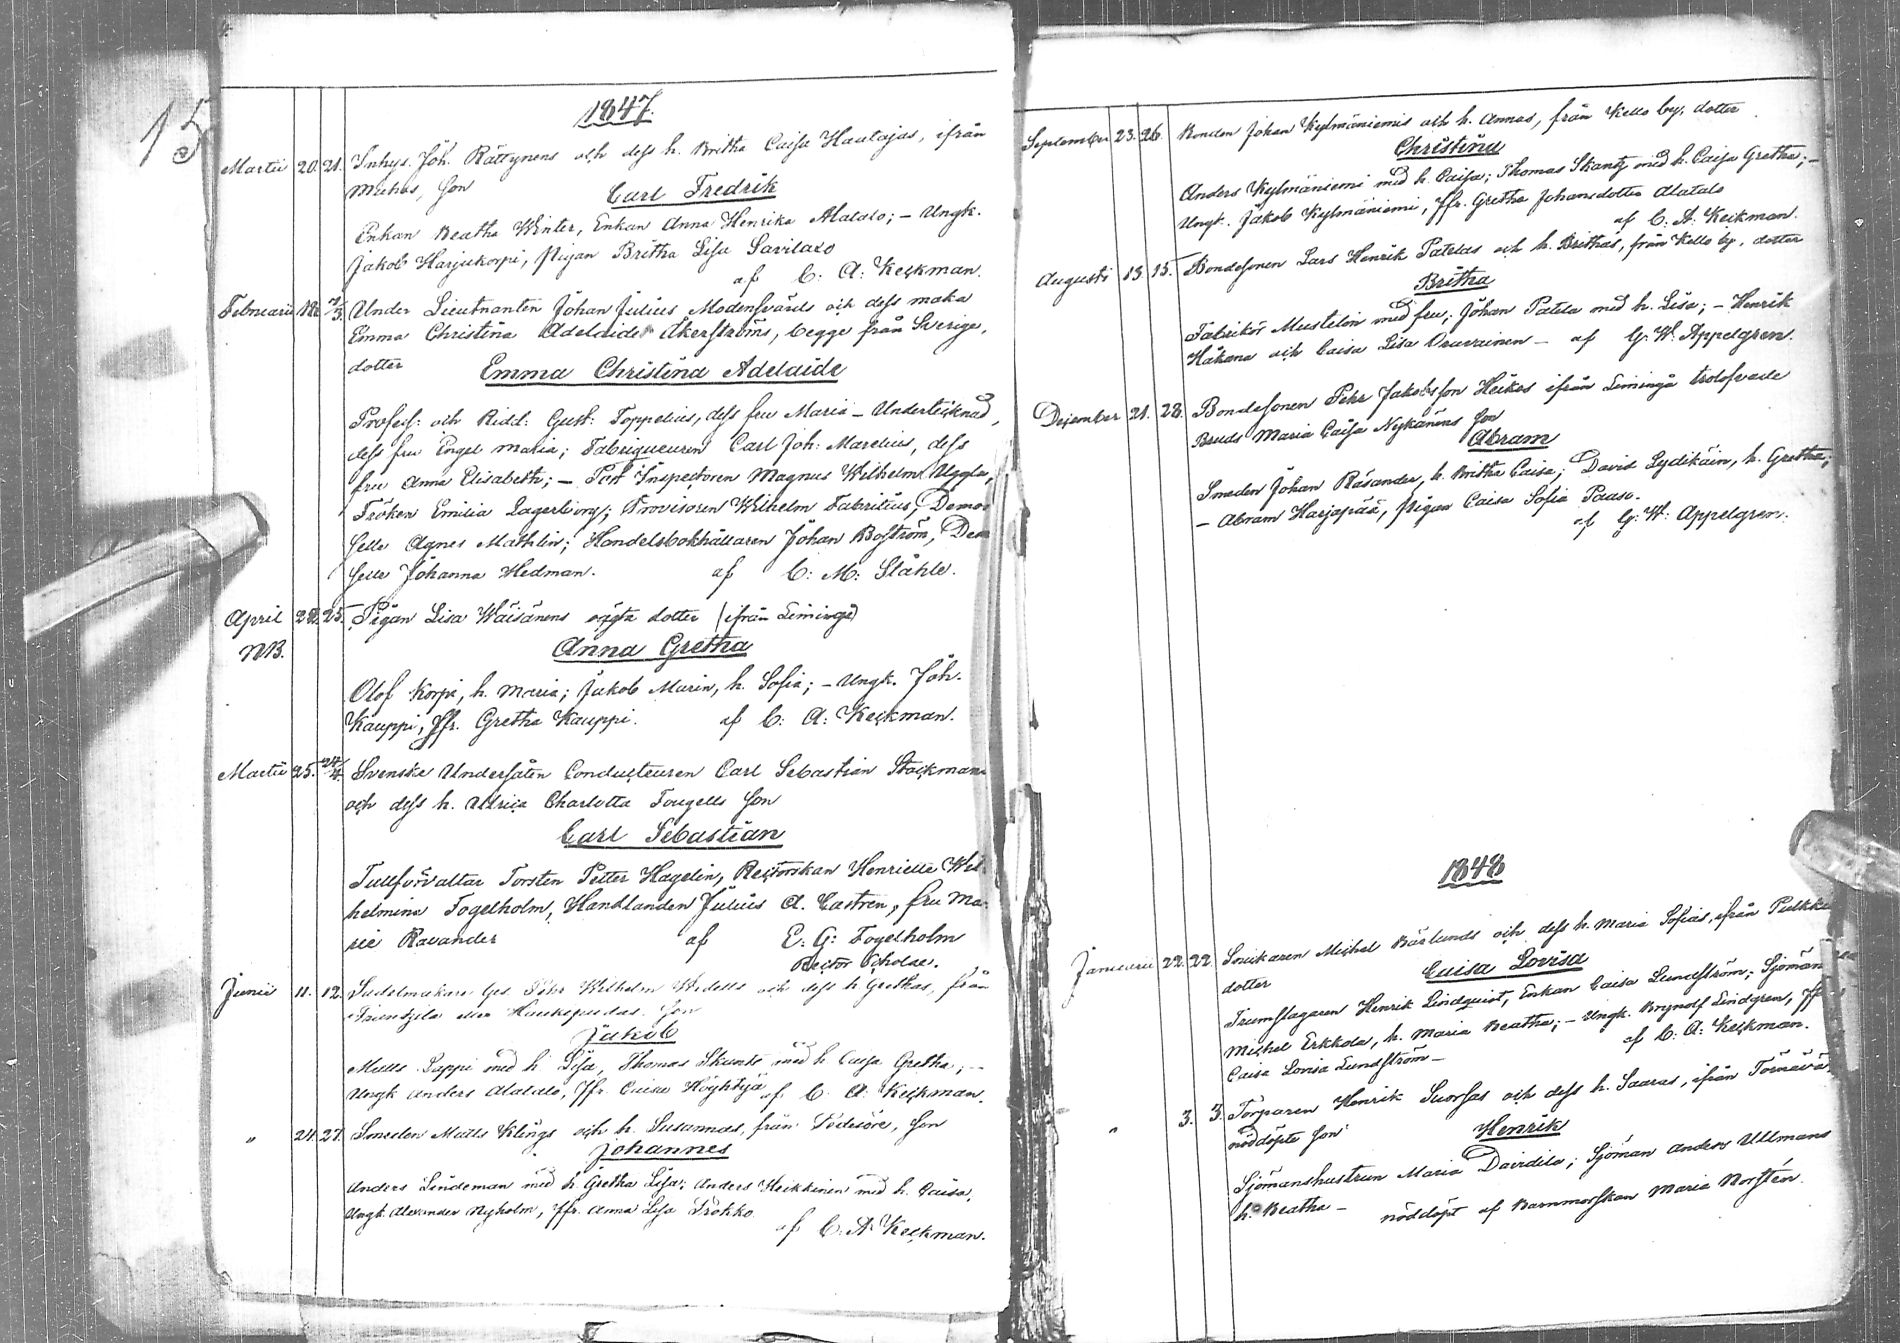 15
1847.
Martii 20. 21. Inhys. Joh. Rättynens och dess h. Britha Caisa Haatajas, ifrån
Muhos, son
Carl Fredrik
Enkan Beatha Winter, Enkan Anna Henrika Alatalo; – Ungk.
Jakob Harjukorpi, pigan Britha Lisa Savilaxo
af C: A: Keckman.
Februarii 18. 7/3. Under Lieutnanten Johan Julius Modensvärds och dess maka
Emma Christina Adelaide Åkerströms, begge från Sverige,
dotter
Emma Christina Adelaide
Profess: och Ridd: Gust: Toppelius, dess fru Maria – Undertecknad,
dess fru Engel Maria; Fabriqueuren Carl Joh: Marelius, dess
fru Anna Elisabeth; – Post Inspectoren Magnus Wilhelm Uggla,
Fröken Emilia Lagerborg; Provisoren Wilhelm Fabritius, Demoi
selle Agnes Mathlin; Handelsbokhållaren Johan Boström, Dem
selle Johanna Hedman. af C: M: Ståhle.
April 22. 25. Pigan Lisa Wäisänens oägta dotter (ifrån Limingo)
NB.
Anna Gretha
Olof Korpi, h. Maria; Jakob Marin, h. Sofia; – Ungk. Joh.
Kauppi, Jfr. Gretha Kauppi. af C: A: Keckman.
Martii 25. 24/4. Svenske Undersåten Conducteuren Carl Sebastian Stockman
och dess h. Ulrica Charlotta Fougells son
Carl Sebastian
Tullförvaltar Torsten Petter Hagelin, Rectorskan Henrietta Wil
helmina Fogelholm, Handlanden Julius A. Castren, fru Ma
rie Ravander af E: G: Fogelholm
Rector Scholae.
Junii 11. 12. Sadelmakare Ges. Pehr Wilhelm Widells och dess h. Grethas, från
Haukipudas son
Jakob
Matts Sappi med h. Lisa, Thomas Skants med h. Caisa Gretha; –
Ungk Anders Alatalo, Jfr. Caisa Höyhtyä af C. A. Keckman.
" 24. 27. Smeden Matts Klings och h. Susannas, från Pedersöre, son
Johannes
Anders Lindeman med h. Gretha Lisa; Anders Heikkinen med h. Caisa.
Ungk Alexander Nyholm, Jfr. Anna Lisa Frökko
af C. A. Keckman.
September 23. 26. Bonden Johan Kylmäniemis och h. Annas, från Kello by, dotter
Christina
Anders Kylmäniemi med h. Caisa; Thomas Skantz med h. Caisa Gretha; –
Ungk. Jakob Kylmäniemi, Jfr. Gretha Johansdotter Alatalo
af C. A. Keckman.
Augusti 13. 15. Bondesonen Lars Henrik Pateldas och h. Brithas, från Kello by, dotter
Britha
Fabrikör Mustelin med fru; Johan Patela med h. Lisa; – Henrik
Håkana och Caisa Lisa Oravainen – af G. W. Appelgren.
Dezember 21. 28. Bondesonen Pehr Jakobsson Heikas ifrån Limingå trolofvade
Bruds Maria Caisa Nykänens son
Abram
Smeden Johan Räsander, h. Britha Caisa; David Lydikäin, h. Gretha;
– Abram Harjapää, pigan Caisa Sofia Paaso.
af G: W: Appelgren.
1848
Januarii 22. 22. Snickaren Michel Bärlunds och dess h. Maria Sofias, ifrån Pulkki
dotter
Caisa Lovisa
Trumslagaren Henrik Lindquist, Enkan Caisa Lundström; Sjöman
Michel Erkkola, h. Maria Beatha; – Ungk. Brynolf Lindgren, Jfr
Caisa Lovisa Lundström – af C: A: Keckman.
" 3. 3. Torparen Henrik Suorsas och dess h. Saaras, ifrån Törnävä
nöddöpte son
Henrik
Sjömanshustrun Maria Davidila; Sjöman Anders Ullmans
h. Beatha – nöddöpt af Barnmorskan Maria Norstén.